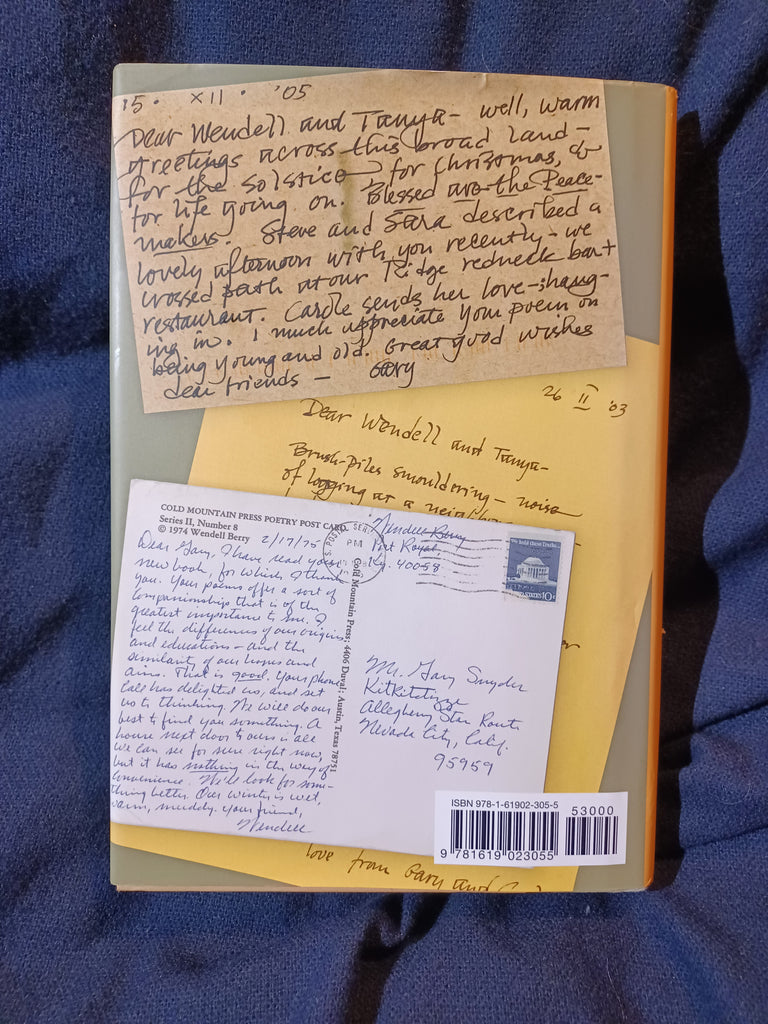 15 · XII · '05
Dear Wendell and Tanya – well, warm
greetings across this broad land –
for the solstice, for Christmas, &
for life going on. Blessed are the Peace-
makers. Steve and Sara described a
lovely afternoon with you recently – we
crossed path at our Ridge redneck bar +
restaurant. Carole sends her love – hang-
ing in. I much appreciate your poem on
being young and old. Great good wishes
dear friends – Gary
26 II '03
Dear Wendell and Tanya –
Brush-piles smouldering – noise
of logging at a neighbor
COLD MOUNTAIN PRESS POETRY POST CARD
Series II, Number 8
© 1974 Wendell Berry
2/17/75
Dear Gary, I have read your
new book, for which I thank
you. Your poems offer a sort of
companionship that is of the
greatest importance to me. I
feel the difference of our origins
and educations – and the
similarity of our homes and
aims. That is good. Your phone
call has delighted us, and set
us to thinking. We will do our
best to find you something. A
house next door to ours is all
we can see for sure right now,
but it has nothing in the way of
convenience. We'll look for some-
thing better. Our winter is wet,
warm, muddy. Your friend,
Wendell
Cold Mountain Press; 4406 Duval; Austin, Texas 78751
Wendell Berry
Port Royal,
Ky. 40058
PM
10c
Mr. Gary Snyder
Kitkitdizze
Allegheny Star Route
Nevada City, Calif.
95959
love from Gary and
ISBN 978-1-61902-305-5
53000
9 781619 023055